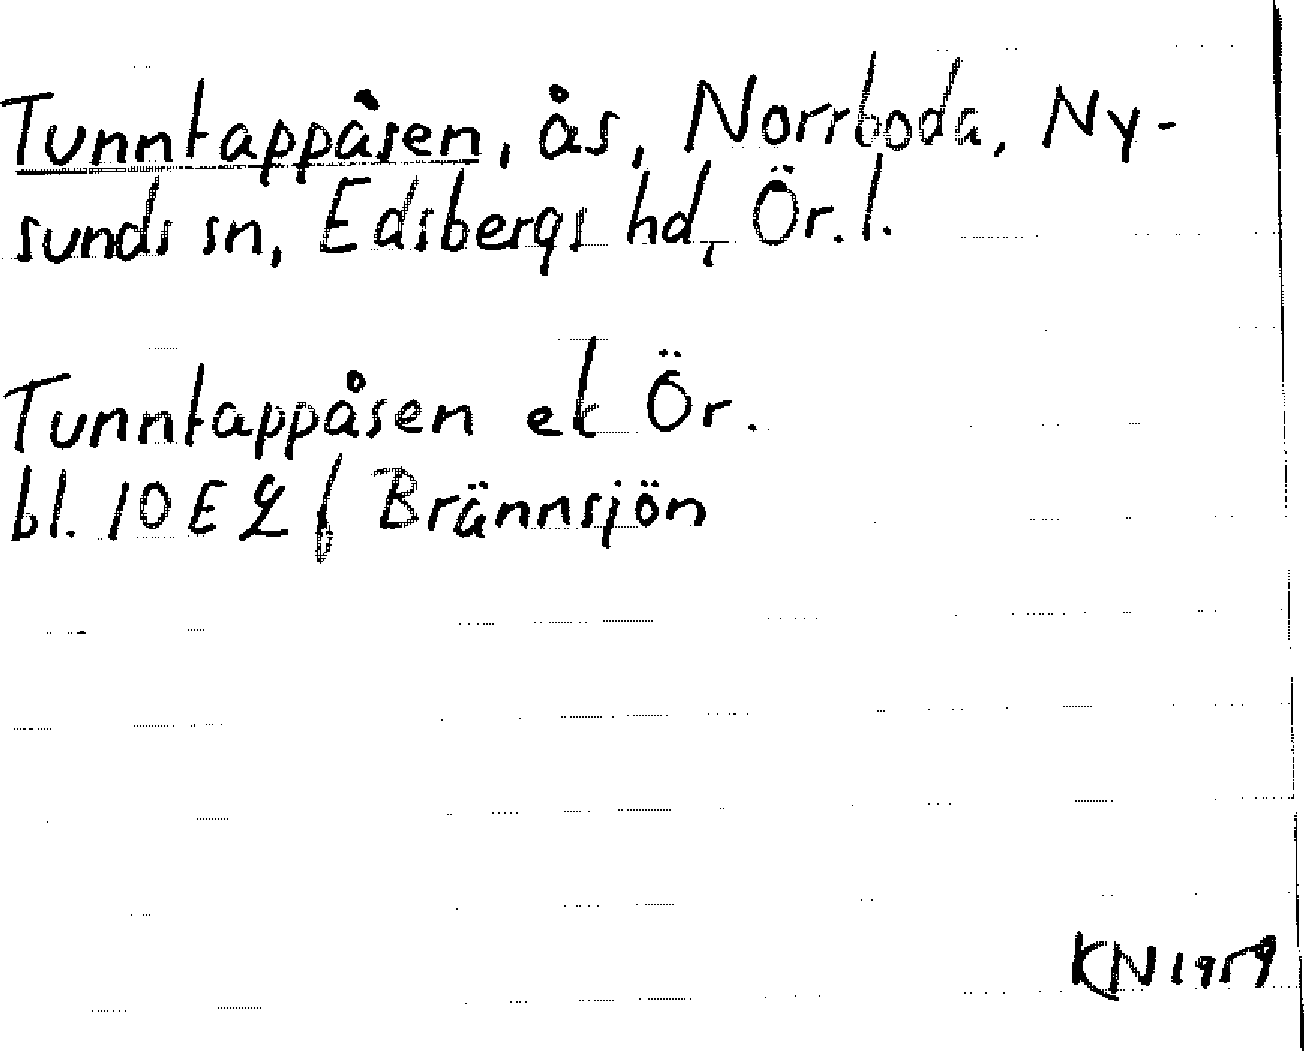 Tunntappåsen, ås, Norrboda, Ny-
sunds sn, Edsbergs hd, Ör. l.
Tunntappåsen ek Ör.
bl. 10E 2 f Brännsjön
KN 1959